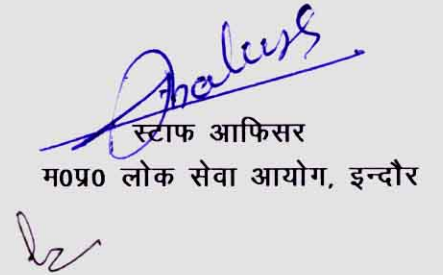 स्टाफ आफिसर
म0प्र0 लोक सेवा आयोग, इन्दौर